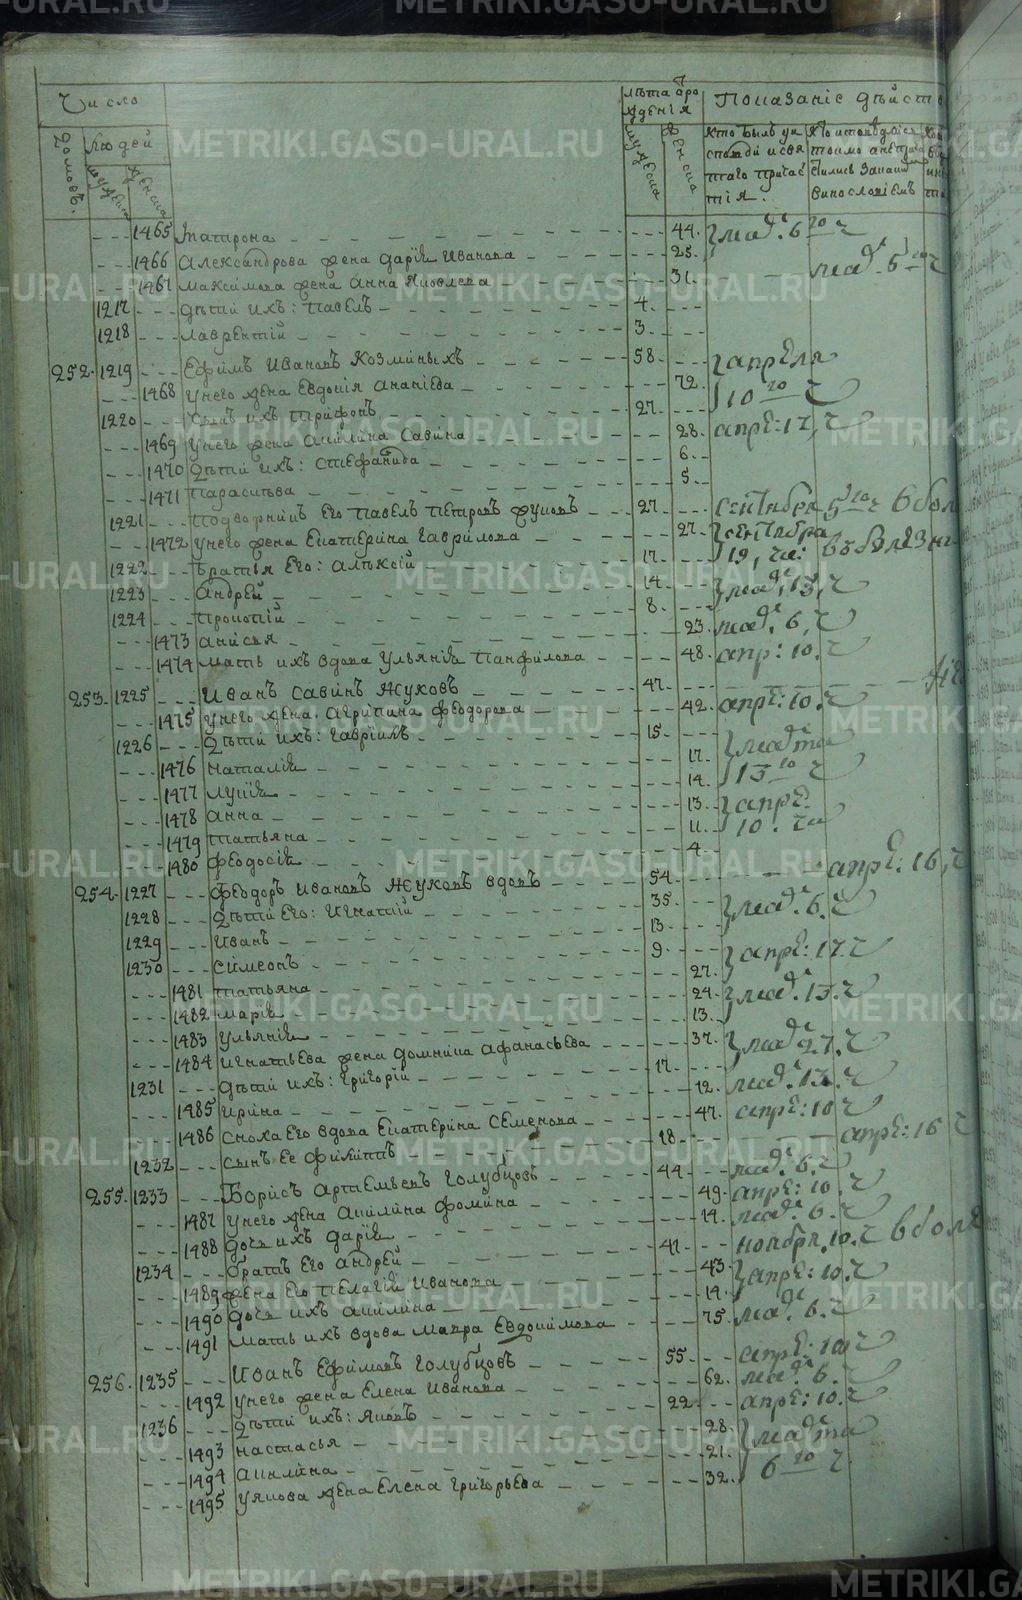 Число
лѣта ѿро
жденія
Показаніе дѣйст
домовъ.
Людей
мужеска
женска
мужеска
женска
кто былъ у и
споведи и свя
таго причас
тія.
1465 Матрона 44. мад. 6 го ч
1466 Александрова жена Дарія Иванова 25.
1467 Максимова жена Анна Яковлева 31. мад. 5 го ч
1217 дѣти ихъ: Павелъ 4.
1218 Лаврентій 3.
252. 1219 Ефимъ Ивановъ Козминыхъ 58. апреля
1468 у него жена Евдокія Ананіева 72. 10 го ч
1220 Сынъ ихъ Трифонъ 27.
1469 у него жена Акилина Савина 28. апрѣ: 17, ч
1470 дѣти ихъ: Стефанида 6.
1471 Параскева 5.
1221 Подворникъ его Павелъ Петровъ 27. сентября 5 го ч в бол
1472 у него жена Екатерина Гаврилова 27. сентября
1222 братья его: Алѣксій 17. 19, чи: въ болѣзни
1223 Андрей 14.
1224 Прокопій 8. мад. 13, ч
1473 Анисья 23. мад. 6, ч
1474 мать ихъ вдова Ульянія Панфилова 48. апр: 10. ч
253. 1225 Иванъ Савинъ Жуковъ 47.
1475 у него жена Агрипина Феодорова 42. апрѣ: 10. ч
1226 дѣти ихъ: Гавріилъ 15.
1476 Наталія 17. мадта
1477 Лукія 14. 13 го ч
1478 Анна 13. апрѣ
1479 Татьяна 11. 10. чи
1480 Феодосія 4.
254. 1227 Феодоръ Ивановъ Жуковъ вдовъ 54. апрѣ: 16, ч
1228 дѣти его: Игнатій 35. мад. 6. ч
1229 Иванъ 13.
1230 Симеонъ 9. апрѣ: 17. ч
1481 Татьяна 27.
1482 Марія 24. мад. 13. ч
1483 Ульянія 13.
1484 Игнатьева жена Домника Афанасьева 37. мад. 27. ч
1231 дѣти ихъ: Григорій 17.
1485 Ирина 12. мад. 13. ч
1486 сноха его вдова Екатерина Семенова 47. апрѣ: 10 ч
1232 сынъ ее Филиппъ 18. апрѣ: 16 ч
255. 1233 Борисъ Артемьевъ Голубцовъ 44. мад. 6. ч
1487 у него жена Акилина Фомина 49. апрѣ: 10. ч
1488 дочь ихъ Дарія 14. мад. 6. ч
1234 братъ его Андрей 41. ноябр. 10. ч в боле
1489 жена его Пелагія Иванова 43. апрѣ: 10. ч
1490 дочь ихъ Акилина 14.
1491 мать ихъ вдова Мавра Евдокимова 75. мад. 6. ч
256. 1235 Иванъ Ефимовъ Голубцовъ 55. апрѣ: 10 ч
1492 у него жена Елена Иванова 62. мад. 6. ч
1236 дѣти ихъ: Яковъ 22. апрѣ: 10. ч
1493 Настасья 28. мадта
1494 Акилина 21. 6 го ч
1495 Якова жена Елена Григорьева 32.
METRIKI.GASO-URAL.RU